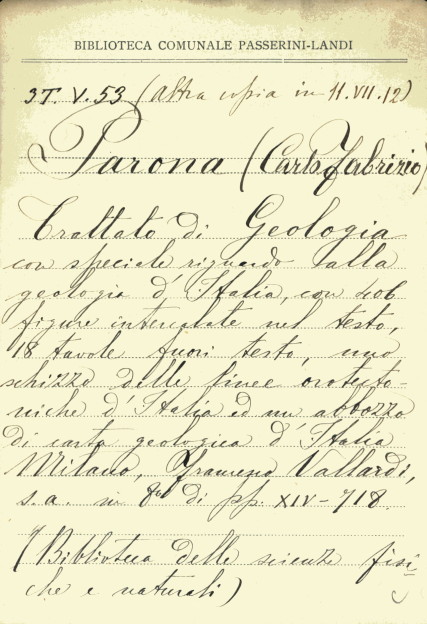 BIBLIOTECA COMUNALE PASSERINI-LANDI
3T. V. 53 (Altra copia in 11.VII.12)
Parona (Carlo Fabrizio)
Trattato di Geologia
con speciale riguardo alla
geologia d'Italia, con 406
figure intercalate nel testo,
18 tavole fuori testo, uno
schizzo delle linee orotetto-
niche d'Italia ed un abbozzo
di carta geologica d'Italia
Milano, Francesco Vallardi,
s.a. in 8º di pp. XIV-718.
(Biblioteca delle scienze fisi-
che e naturali)